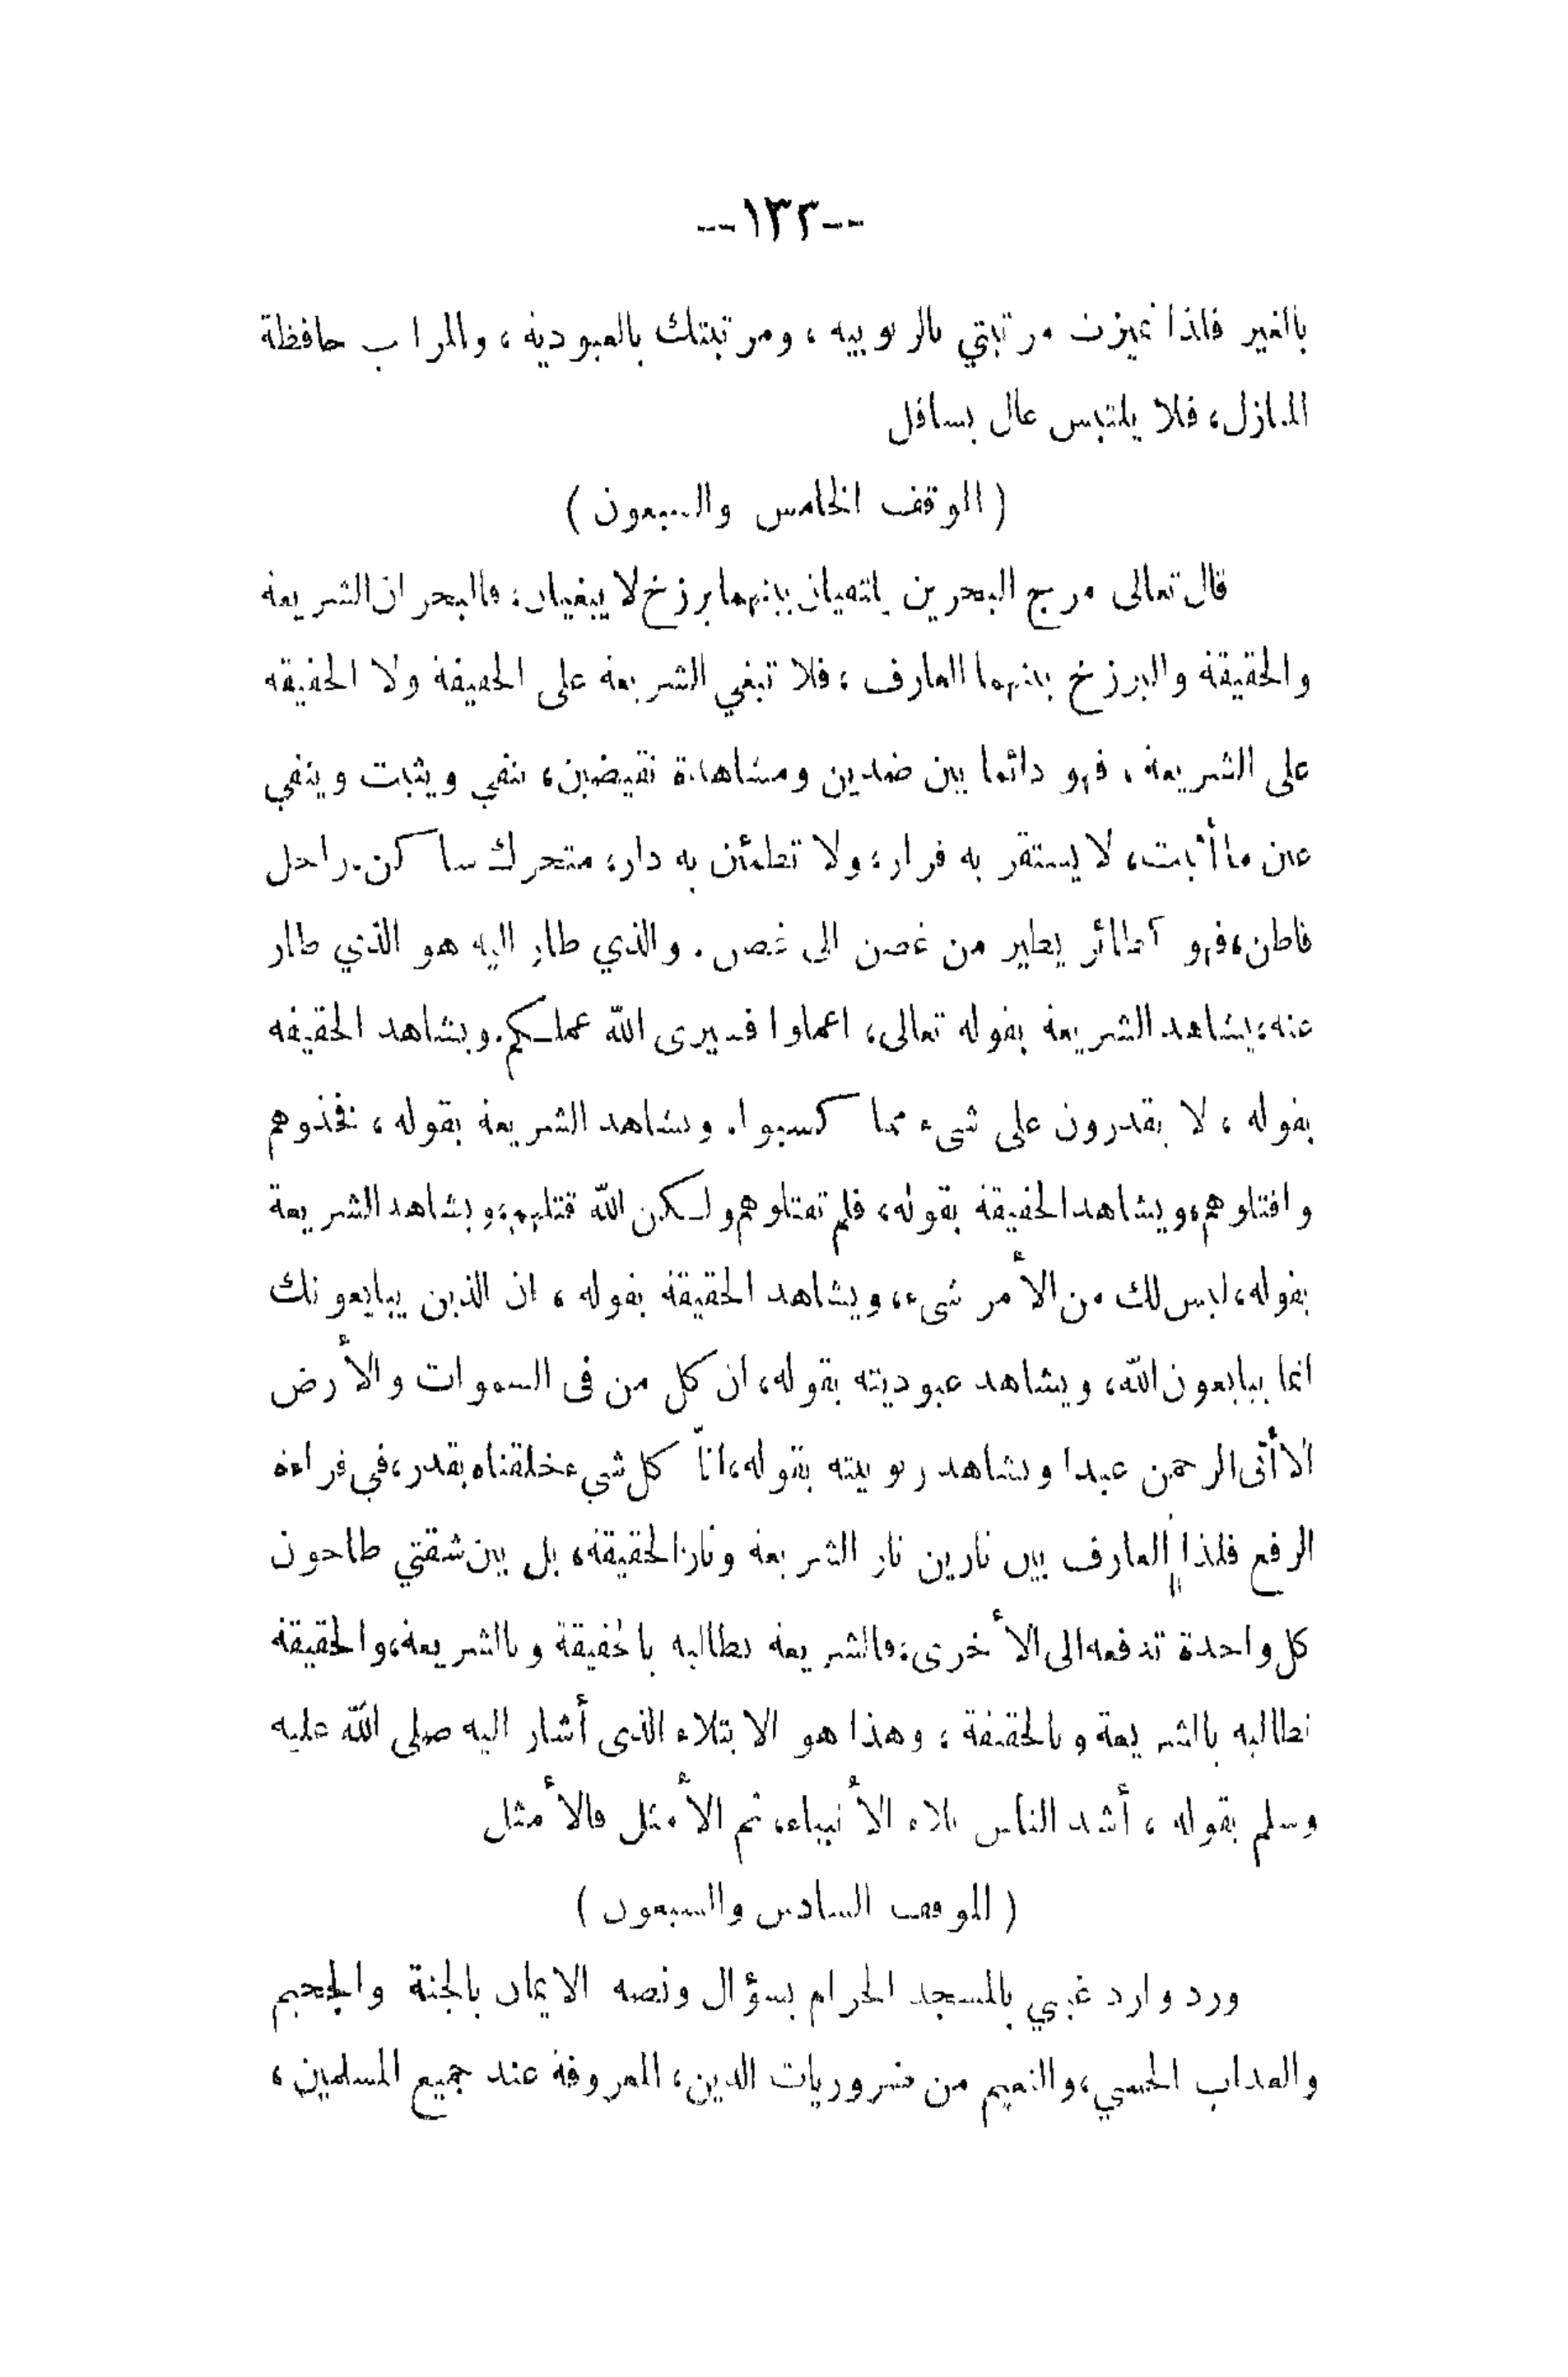 --١٣٢--
بالغير فلذا تميزت مرتبتي بالربوبية ، ومرتبتك بالعبودية ، والمراتب حافظة
المنازل ، فلا يلتبس عال بسافل
( الموقف الخامس والسبعون )
قال تعالى مرج البحرين يلتقيان بينهما برزخ لا يبغيان ، فالبحران الشريعة
والحقيقة والبرزخ بينهما العارف ، فلا تبغي الشريعة على الحقيقة ولا الحقيقة
على الشريعة ، فهو دائما بين ضدين ومشاهدة نقيضين ، ينفي ويثبت وينفي
عين ما أثبت ، لا يستقر به قرار ، ولا تطمئن به دار ، متحرك ساكن . راحل
قاطن ، فهو كطائر يطير من غصن الى غصن . والذي طار اليه هو الذي طار
عنه ، يشاهد الشريعة بقوله تعالى ، اعملوا فسيرى الله عملكم . ويشاهد الحقيقة
بقوله ، لا يقدرون على شىء مما كسبوا . ويشاهد الشريعة بقوله ، فخذوهم
واقتلوهم ، ويشاهد الحقيقة بقوله ، فلم تقتلوهم ولكن الله قتلهم ، ويشاهد الشريعة
بقوله ، ليس لك من الأمر شىء ، ويشاهد الحقيقة بقوله ، ان الذين يبايعونك
انما يبايعون الله ، ويشاهد عبوديته بقوله ، ان كل من فى السموات والأرض
الا أتى الرحمن عبدا ويشاهد ربوبيته بقوله ، انّا كل شيء خلقناه بقدر ، في قراءة
الرفع فلذا العارف بين نارين نار الشريعة ونار الحقيقة ، بل بين شقتي طاحون
كل واحدة تدفعه الى الأخرى ، فالشريعة تطالبه بالحقيقة وبالشريعة ، والحقيقة
تطالبه بالشريعة وبالحقيقة ، وهذا هو الابتلاء الذى أشار اليه صلى الله عليه
وسلم بقوله ، أشد الناس بلاء الأنبياء ، ثم الأمثل فالأمثل
( الموقف السادس والسبعون )
ورد وارد غيبي بالمسجد الحرام بسؤال ونصه الايمان بالجنة والجحيم
والعذاب الحسي ، والنعيم من ضروريات الدين ، المعروفة عند جميع المسلمين ،